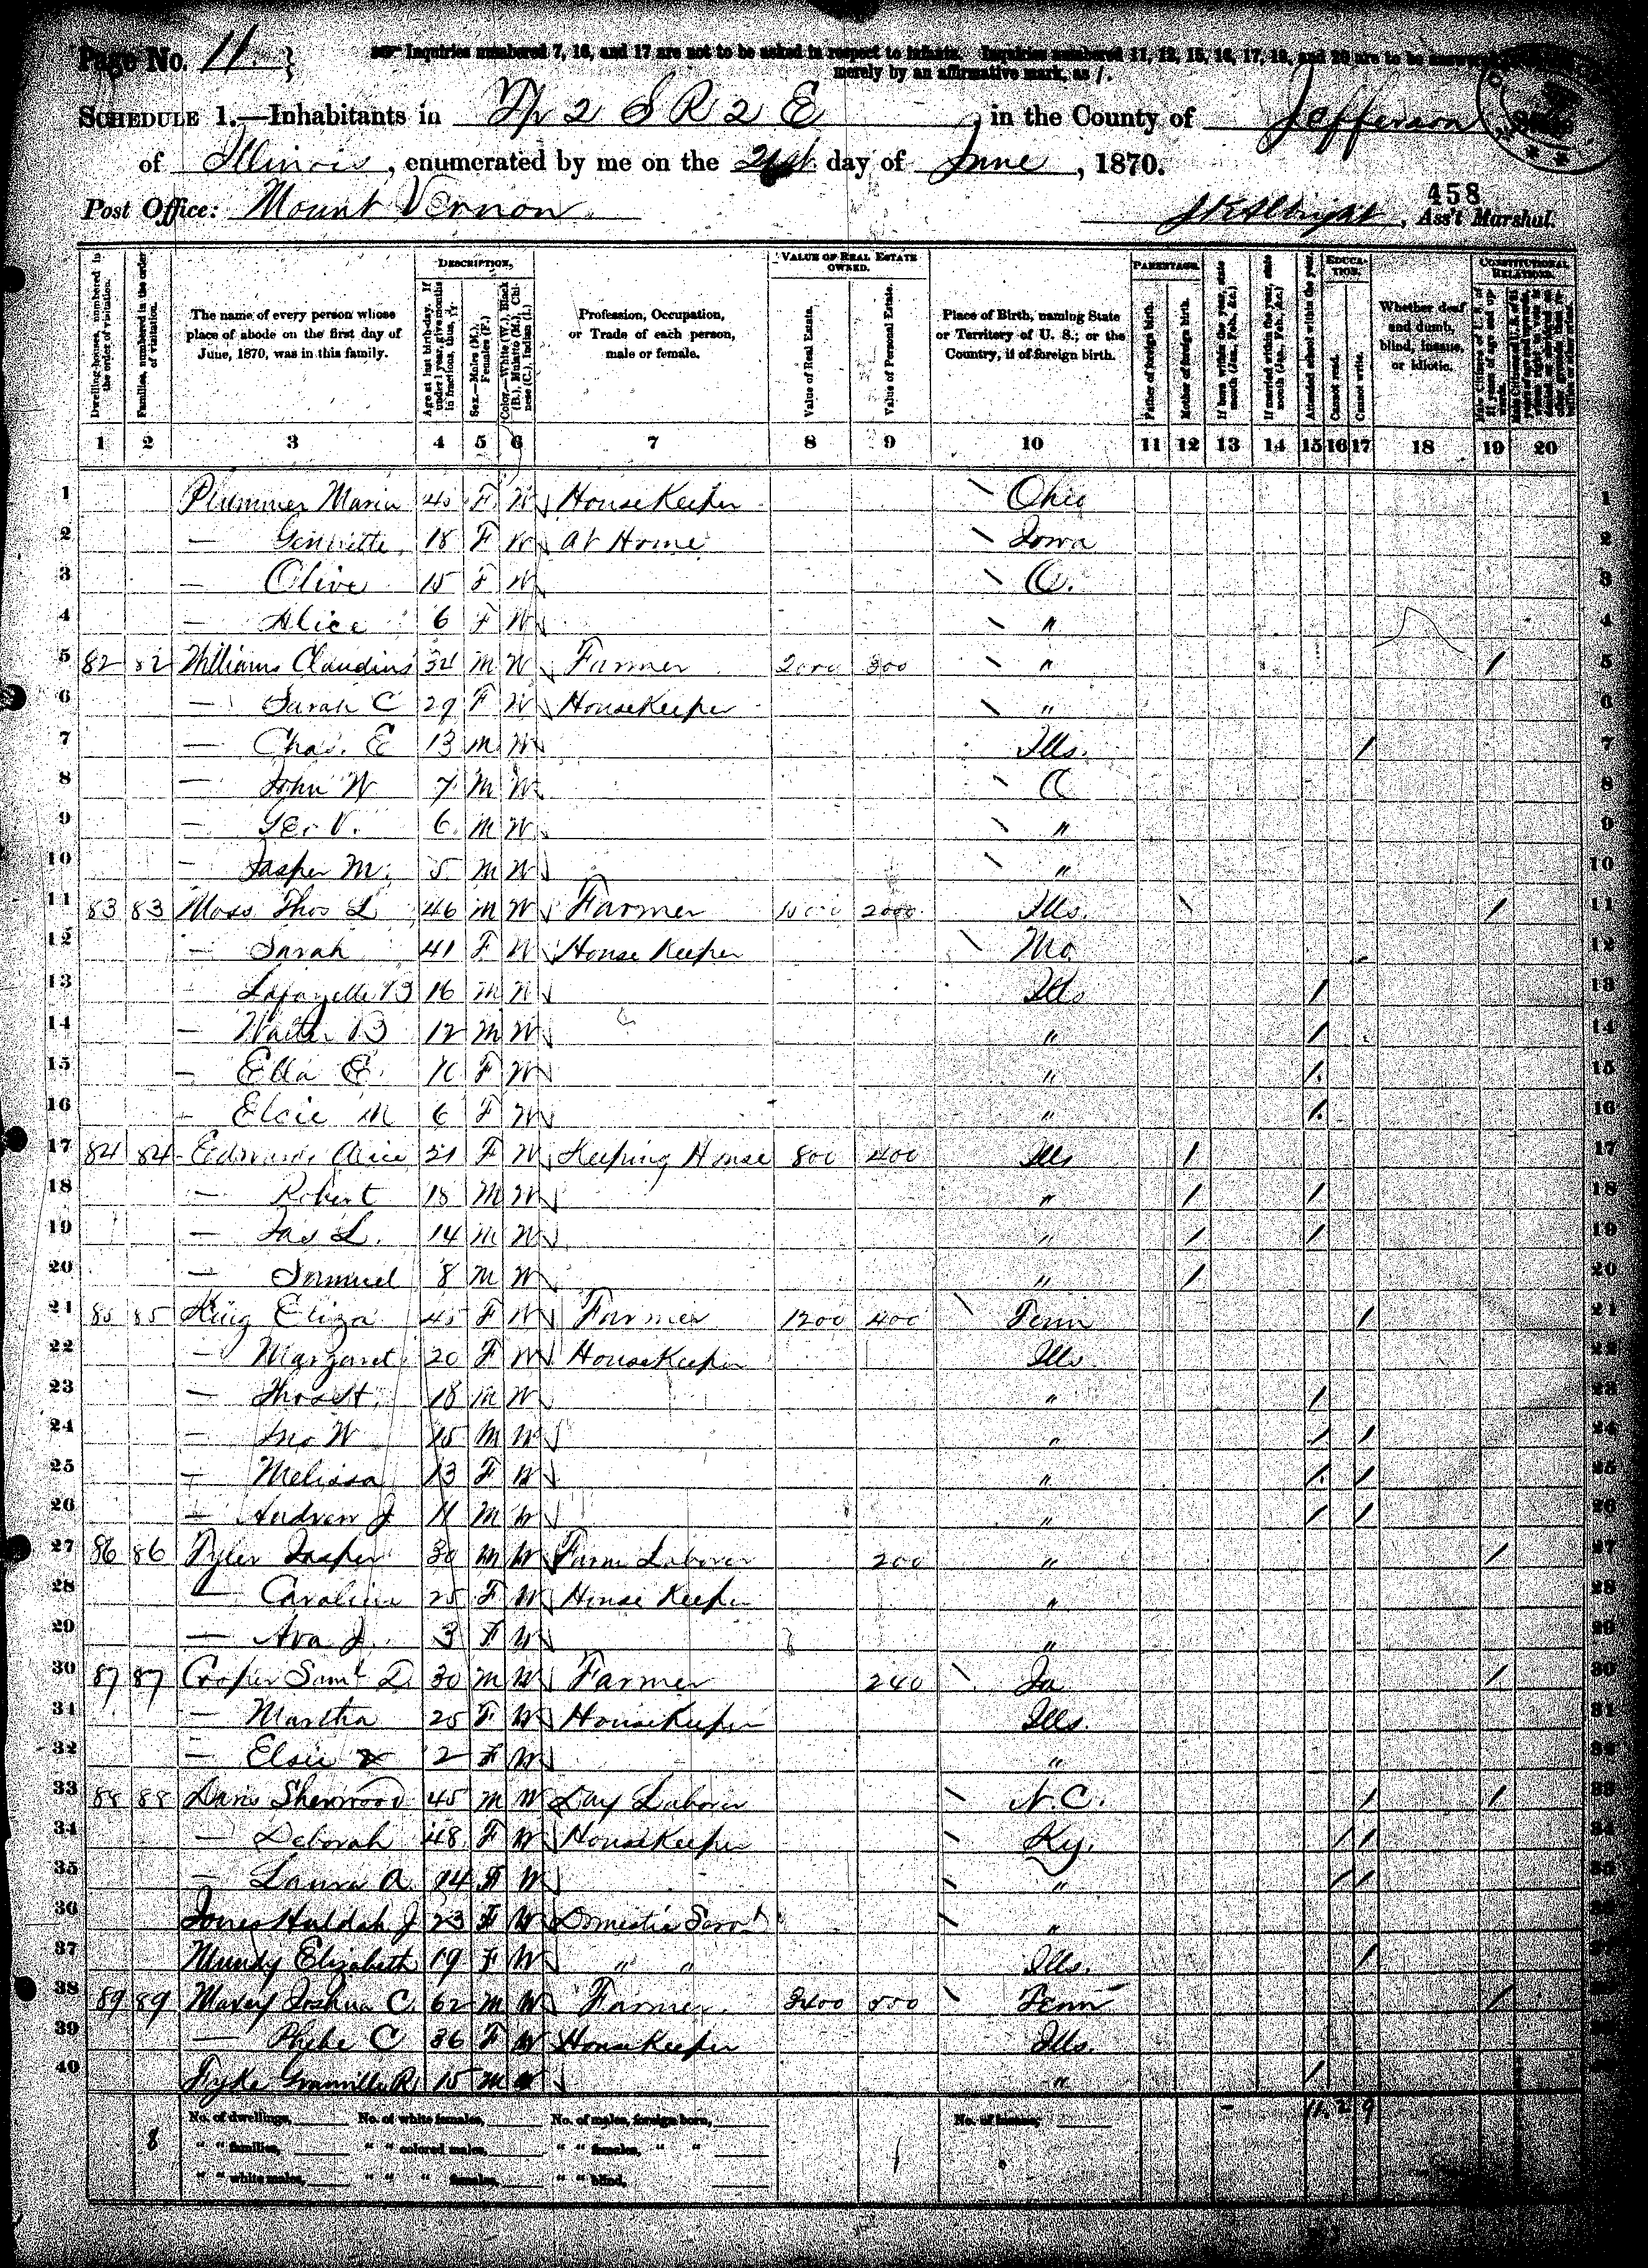 Page No. 11.
Inquiries numbered 7, 16, and 17 are not to be asked in respect to infants. Inquiries numbered 11, 12, 15, 16, 17, 19, and 20 are to be answered
merely by an affirmative mark, as /.
SCHEDULE 1.—Inhabitants in Tp 2 S R 2 E, in the County of Jefferson, State
of Illinois, enumerated by me on the 21st day of June, 1870.
458
Post Office: Mount Vernon
Albright, Ass't Marshal.
DESCRIPTION. VALUE OF REAL ESTATE OWNED. PARENTAGE. EDUCATION. CONSTITUTIONAL RELATIONS.
Dwelling-houses, numbered in the order of visitation.
Families, numbered in the order of visitation.
The name of every person whose place of abode on the first day of June, 1870, was in this family.
Age at last birth-day. If under 1 year, give months in fractions, thus,
Sex.—Males (M.), Females (F.)
Color.—White (W.), Black (B.), Mulatto (M.), Chinese (C.), Indian (I.)
Profession, Occupation, or Trade of each person, male or female.
Value of Real Estate.
Value of Personal Estate.
Place of Birth, naming State or Territory of U. S.; or the Country, if of foreign birth.
Father of foreign birth.
Mother of foreign birth.
If born within the year, state month (Jan., Feb., &c.)
If married within the year, state month (Jan., Feb., &c.)
Attended school within the year.
Cannot read.
Cannot write.
Whether deaf and dumb, blind, insane, or idiotic.
Male Citizens of U. S. of 21 years of age and upwards.
1 2 3 4 5 6 7 8 9 10 11 12 13 14 15 16 17 18 19 20
1 Plummer Maria 40 F W HouseKeeper Ohio 1
2 — 18 F W At Home Iowa 2
3 — Olive 15 F W O. 3
4 — Alice 6 F W " 4
5 82 82 Williams Claudius 34 M W Farmer 2000 300 " / 5
6 — Sarah C 29 F W HouseKeeper " 6
7 — Chas. E 13 M W Ills. / 7
8 — John W 7 M W O 8
9 — Geo V. 6 M W " 9
10 — Jasper M. 5 M W " 10
11 83 83 Moss Thos L 46 M W Farmer 2000 Ills. / 11
12 — Sarah 41 F W House Keeper Mo. 12
13 Lafayette B 16 M W Ills / 13
14 — Walter B 12 M W " / 14
15 — Ella E. 10 F W " / 15
16 — Elcie M 6 F W " / 16
17 84 84 Edwards Alice 21 F W Keeping House 800 400 Ills / 17
18 — Robert 18 M W " / / 18
19 — Jas L. 14 M W " / / 19
20 — Samuel 8 M W " / 20
21 85 85 King Eliza 45 F W Farmer 1200 400 Tenn / 21
22 — Margaret 20 F W HouseKeeper Ills 22
23 — Thos H. 18 M W " / 23
24 — Jno W 15 M W " / / 24
25 — Melissa 13 F W " / / 25
26 — Andrew J 11 M W " / / 26
27 86 86 Tyler Jasper 30 M W Farm Laborer 200 " / 27
28 — Caroline 25 F W House Keeper " 28
29 — Ava J. 3 F W " 29
30 87 87 Cooper Saml D 30 M W Farmer 240 Ia / 30
31 — Martha 25 F W HouseKeeper Ills. 31
32 — Elsie 2 F W " 32
33 88 88 Davis Sherwood 45 M W Day Laborer N.C. / / 33
34 — Deborah 48 F W HouseKeeper Ky. / / 34
35 — Laura A. 14 F W " / / 35
36 Jones Huldah J 23 F W Domestic Servt " 36
37 Mundy Elizabeth 19 F W " " Ills. / 37
38 89 89 Maxey Joshua C. 62 M W Farmer 3400 Tenn / 38
39 — Phebe C 36 F W HouseKeeper Ills. 39
40 Fyke Granville R 15 M W " / 40
No. of dwellings, No. of white females, No. of males, foreign born, No. of insane, 11 2 9
8 " " families, " " colored males, " " females, " " 1
" " white males, " " " females, " " blind,